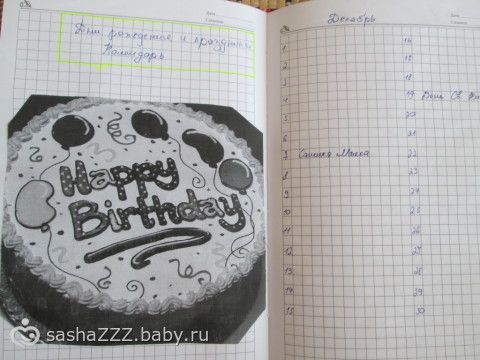 Дни рождение и праздники
Календарь
Happy
Birthday
sashaZZZ.baby.ru
Date
Декабрь
1 16
2 17
3 18
4 19 День Св.
5 20
6 21
7 22
8 23
9 24
10 25
11 26
12 27
13 28
14 29
15 30